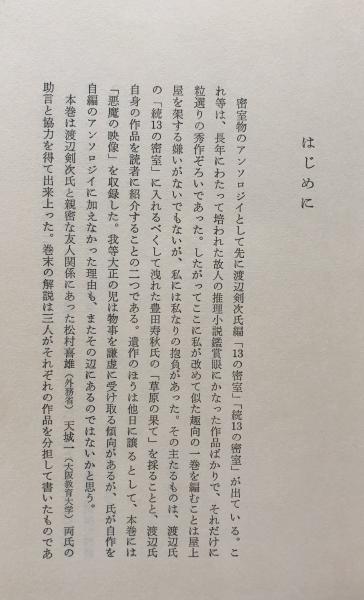 はじめに
密室物のアンソロジイとして先に渡辺剣次氏編「13の密室」「続13の密室」が出ている。こ
れ等は、長年にわたって培われた故人の推理小説鑑賞眼にかなった作品ばかりで、それだけに
粒選りの秀作ぞろいであった。したがってここに私が改めて似た趣向の一巻を編むことは屋上
屋を架する嫌いがないでもないが、私には私なりの抱負があった。その主たるものは、渡辺氏
の「続13の密室」に入れるべくして洩れた豊田寿秋氏の「草原の果て」を採ることと、渡辺氏
自身の作品を読者に紹介することの二つである。遺作のほうは他日に譲るとして、本巻には
「悪魔の映像」を収録した。我等大正の児は物事を謙虚に受け取る傾向があるが、氏が自作を
自編のアンソロジイに加えなかった理由も、またその辺にあるのではないかと思う。
本巻は渡辺剣次氏と親密な友人関係にあった松村喜雄（外務省）天城一（大阪教育大学）両氏の
助言と協力を得て出来上った。巻末の解説は三人がそれぞれの作品を分担して書いたものであ